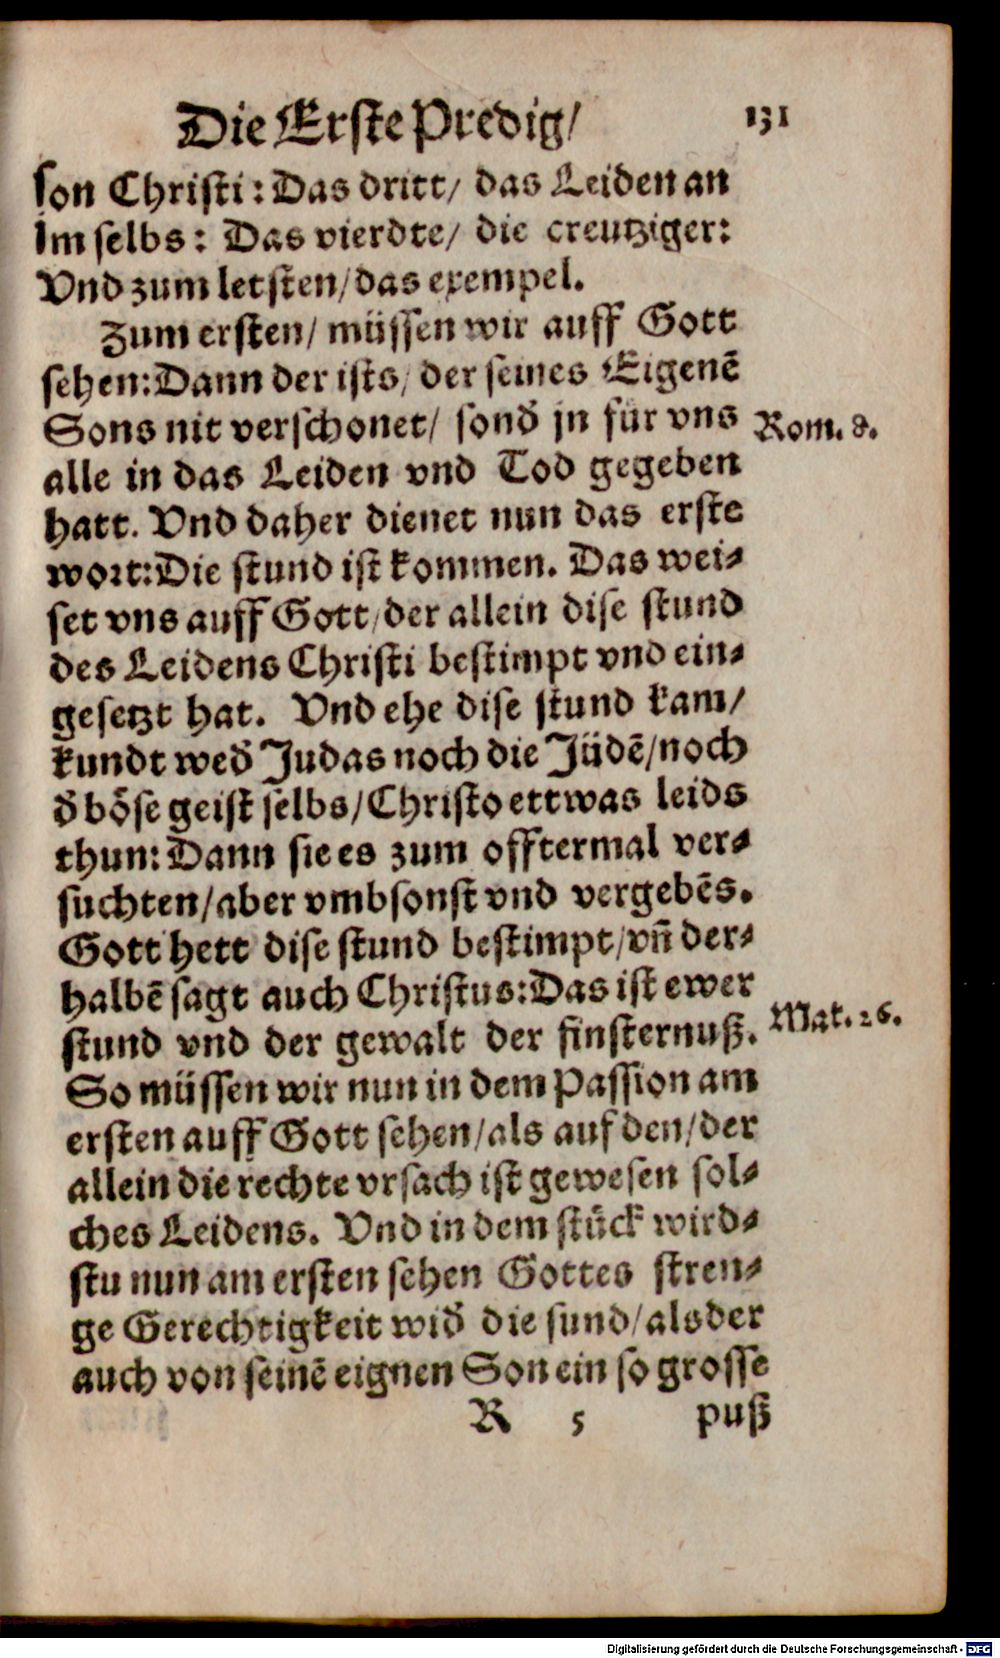 Die Erste Predig/ 131
son Christi: Das dritt/ das Leiden an
im selbs: Das vierdte/ die creutziger:
Vnd zum letsten/ das exempel.
Zum ersten/ müssen wir auff Gott
sehen: Dann der ists/ der seines Eigenē
Sons nit verschonet/ sond̄ jn für vns
Rom. 8.
alle in das Leiden vnd Tod gegeben
hatt. Vnd daher dienet nun das erste
wort: Die stund ist kommen. Das wei⸗
set vns auff Gott/ der allein dise stund
des Leidens Christi bestimpt vnd ein⸗
gesetzt hat. Vnd ehe dise stund kam/
kundt wed̄ Judas noch die Jüdē/ noch
d̄ böse geist selbs/ Christo ettwas leids
thun: Dann sie es zum offtermal ver⸗
suchten/ aber vmbsonst vnd vergebēs.
Gott hett dise stund bestimpt/ vn̄ der⸗
halbē sagt auch Christus: Das ist ewer
stund vnd der gewalt der finsternuß.
Mat. 26.
So müssen wir nun in dem Passion am
ersten auff Gott sehen/ als auf den/ der
allein die rechte vrsach ist gewesen sol⸗
ches Leidens. Vnd in dem stück wird⸗
stu nun am ersten sehen Gottes stren⸗
ge Gerechtigkeit wid̄ die sund/ als der
auch von seinē eignen Son ein so grosse
R 5 puß
Digitalisierung gefördert durch die Deutsche Forschungsgemeinschaft - DFG